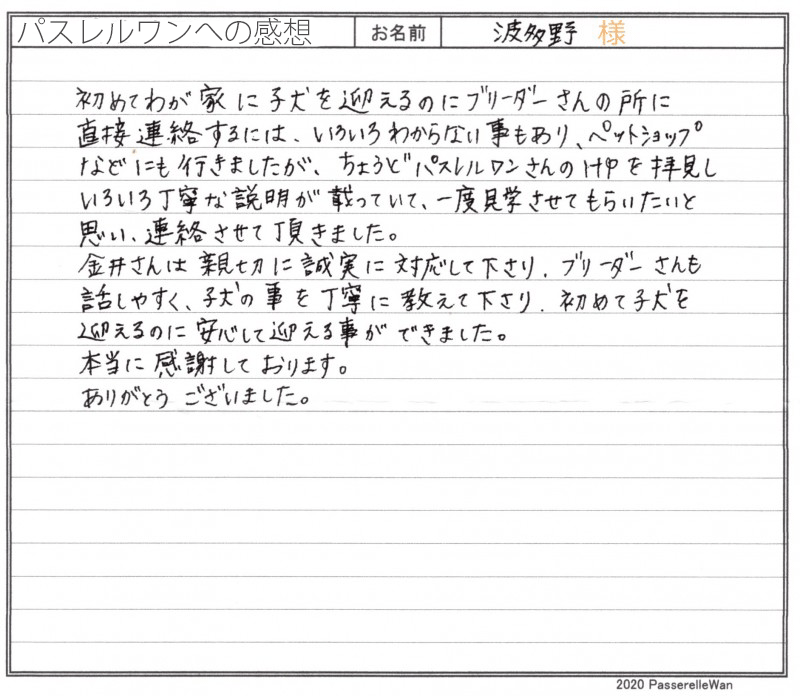 パスレルワンへの感想 お名前 波多野 様
初めてわが家に子犬を迎えるのにブリーダーさんの所に
直接連絡するには、いろいろわからない事もあり、ペットショップ
などにも行きましたが、ちょうどパスレルワンさんのHPを拝見し
いろいろ丁寧な説明が載っていて、一度見学させてもらいたいと
思い、連絡させて頂きました。
金井さんは親切に誠実に対応して下さり、ブリーダーさんも
話しやすく、子犬の事を丁寧に教えて下さり、初めて子犬を
迎えるのに安心して迎える事ができました。
本当に感謝しております。
ありがとうございました。
2020 PasserelleWan